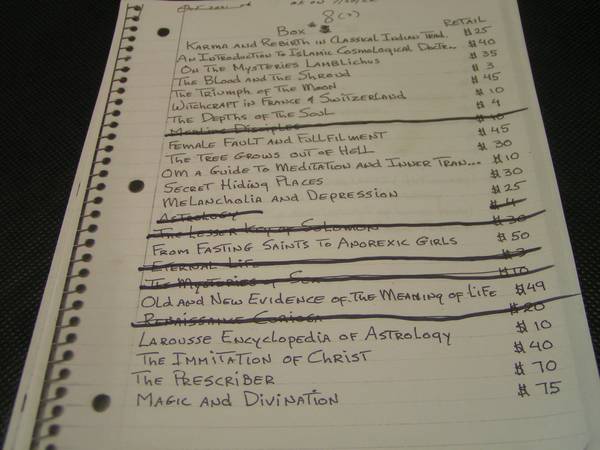 Box # 8 (2)
RETAIL
KARMA AND REBIRTH IN CLASSICAL INDIAN TRAD. $25
AN INTRODUCTION TO ISLAMIC COSMOLOGICAL DOCTR... $40
ON THE MYSTERIES LAMBLICHUS $35
THE BLOOD AND THE SHROUD $3
THE TRIUMPH OF THE MOON $45
WITCHCRAFT IN FRANCE & SWITZERLAND $10
THE DEPTHS OF THE SOUL $4
DISCIPLES $40
FEMALE FAULT AND FULLFILMENT $45
THE TREE GROWS OUT OF HELL $30
OM A GUIDE TO MEDITATION AND INNER TRAN... $10
SECRET HIDING PLACES $30
MELANCHOLIA AND DEPRESSION $25
ASTROLOGY $4
THE LESSER KEY OF SOLOMON $30
FROM FASTING SAINTS TO ANOREXIC GIRLS $50
ETERNAL LIFE $3
THE MYSTERIES OF SEX $10
OLD AND NEW EVIDENCE OF THE MEANING OF LIFE $49
RENAISSANCE CURIOSA $20
LAROUSSE ENCYCLOPEDIA OF ASTROLOGY $10
THE IMMITATION OF CHRIST $40
THE PRESCRIBER $70
MAGIC AND DIVINATION $75